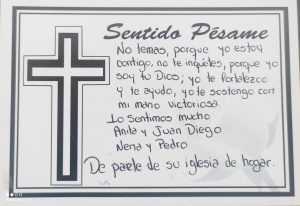 Sentido Pésame
No temas, porque yo estoy
contigo, no te inquietes, porque yo
soy tu Dios; yo te fortalezco
y te ayudo, yo te sostengo con
mi mano victoriosa.
Lo Sentimos mucho
Anita y Juan Diego
Nena y Pedro
De parte de su iglesia de hogar.